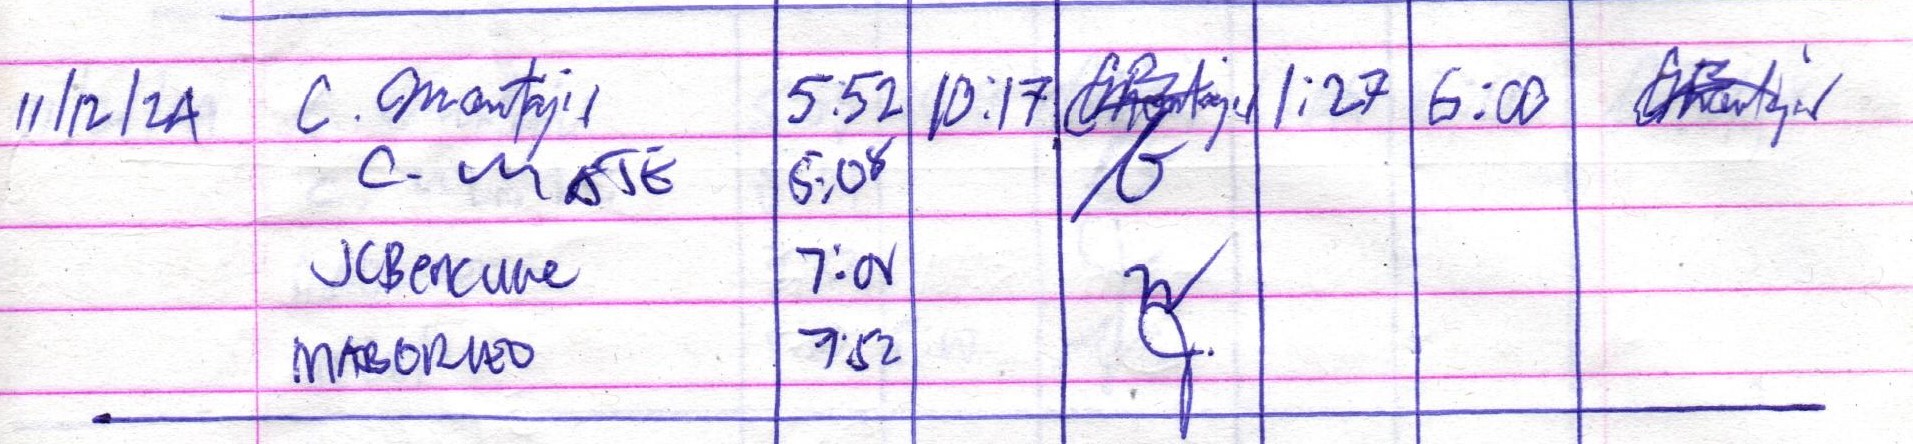 11/12/24 C. Montajes 5:52 10:17 1:27 6:00
C. 6:08
JCBencune 7:01
MABORLEO 7:52